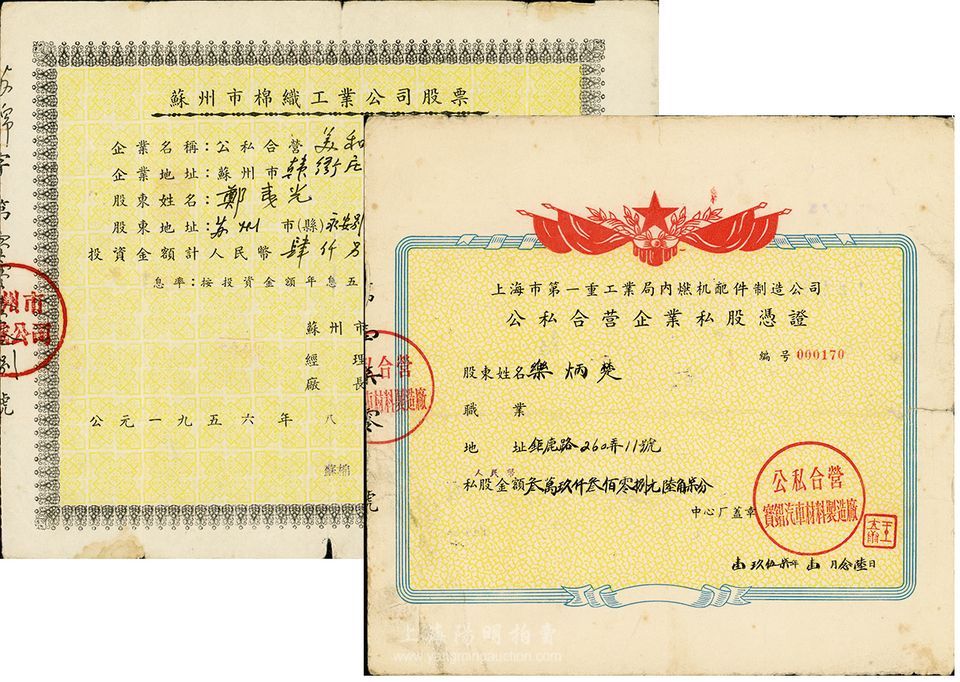 蘇州市棉織工業公司股票
企業名稱：公私合營美和
企業地址：蘇州市韓衙庄
股東姓名：鄭夷光
股東地址：苏州市(縣)永安别
投資金額計人民幣肆仟万
息率：按投資金額年息五
蘇州市
經理
廠長
公元一九五六年八
蘇棉
字第
號
上海市第一重工業局内燃机配件制造公司
公私合营企業私股憑證
編号 000170
股東姓名樂炳
職業
地址鉅鹿路260弄11號
人民幣
私股金額叁萬玖仟叁佰零捌元陸角柒分
中心厂蓋章
公私合营
寶錩汽車材料製造廠
玖伍
年
月念陸日
私合营
車材料製造廠
零
號
上海陽明拍賣
www.yangmingauction.com